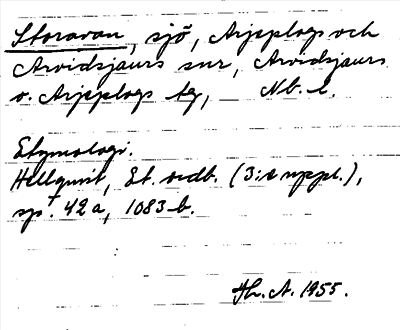 Storavan, sjö, Arjeplogs och
Arvidsjaurs snr, Arvidsjaurs
o. Arjeplogs tg, Nb. l.
Etymologi.
Hellquist, Et. ordb. (3:e uppl.),
sp. 42 a, 1083 b.
Hr. A. 1955.